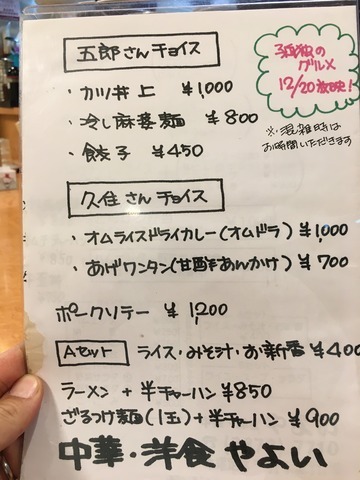 五郎さんチョイス
・カツ丼上 ¥1,000
・冷し麻婆麺 ¥800
・餃子 ¥450
孤独のグルメ
12/20放映!
※混雑時は
お時間いただきます
久住さんチョイス
・オムライスドライカレー(オムドラ) ¥1,000
・あげワンタン(甘酢あんかけ) ¥700
ポークソテー ¥1,200
Aセット ライス・みそ汁・お新香 ¥400
ラーメン + 半チャーハン ¥850
ざるつけ麺(1玉)+半チャーハン ¥900
中華・洋食 やよい